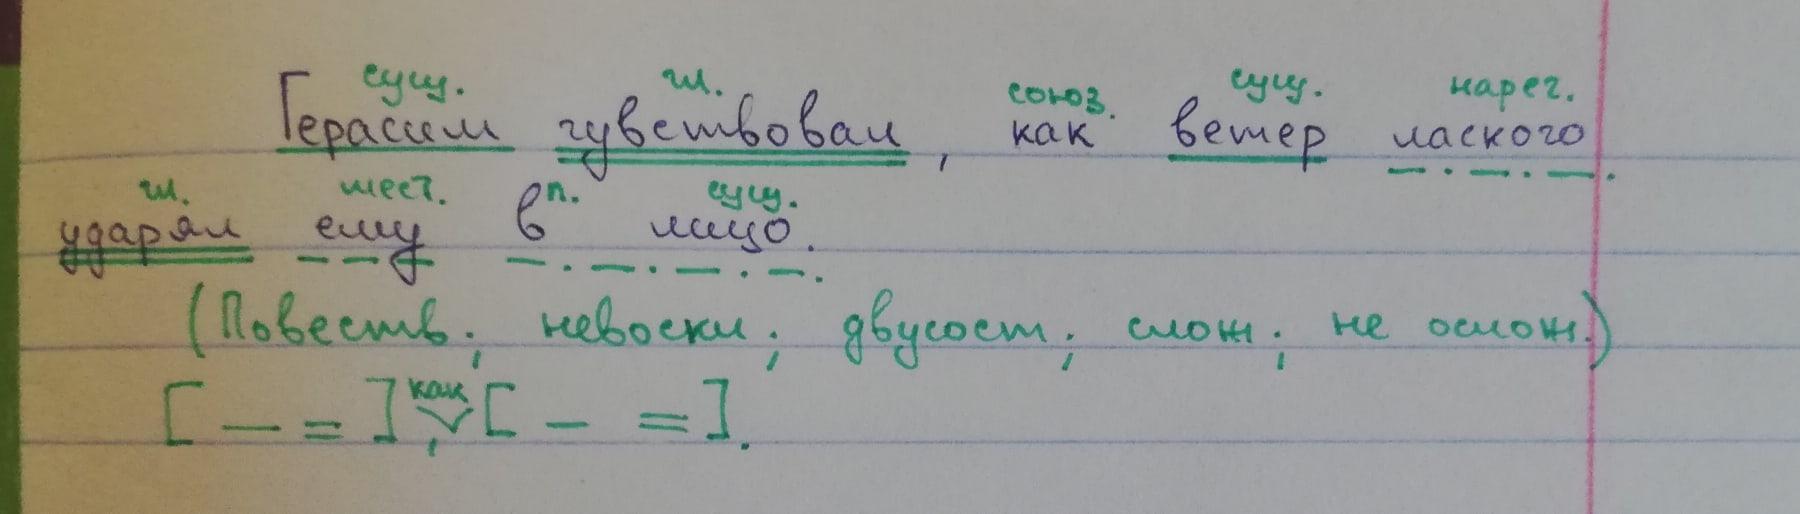 сущ. гл. союз. сущ. нареч.
Герасим чувствовал, как ветер лаского
гл. мест. п. сущ.
ударял ему в лицо.
(Повеств.; невоскл.; двусост.; слож.; не ослож.)
[ — = ], как [ — = ].